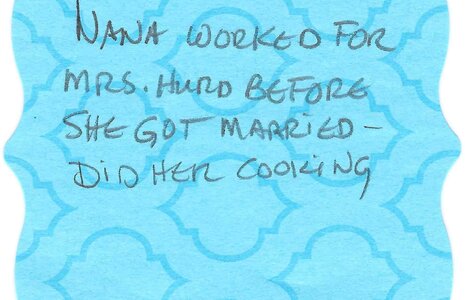 NANA WORKED FOR
MRS. HURD BEFORE
SHE GOT MARRIED –
DID HER COOKING